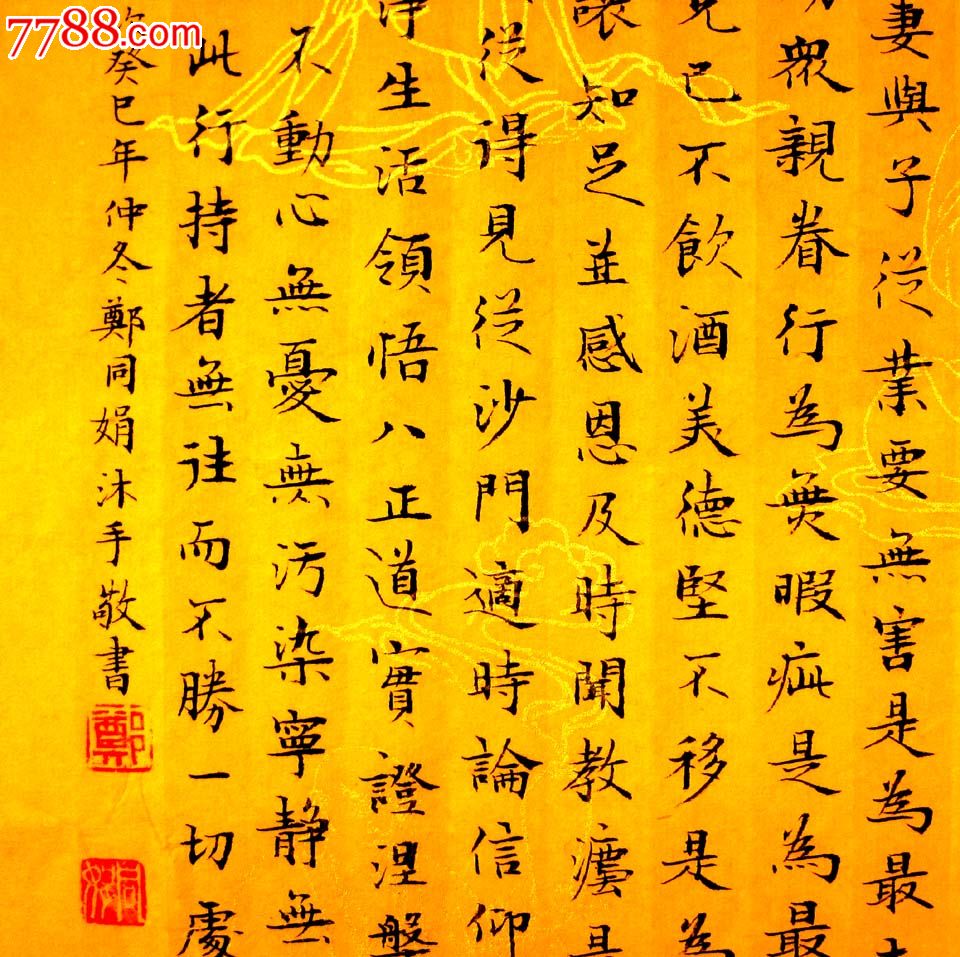 7788.com
妻與子從業要無害是為最
衆親眷行為無瑕疵是為最
已不飲酒美德堅不移是為
知足並感恩及時聞教
從得見從沙門適時論信仰
生活領悟八正道實證涅盤
不動心無憂無污染寧静無
此行持者無往而不勝一切處
癸巳年仲冬鄭同娟沐手敬書
鄭